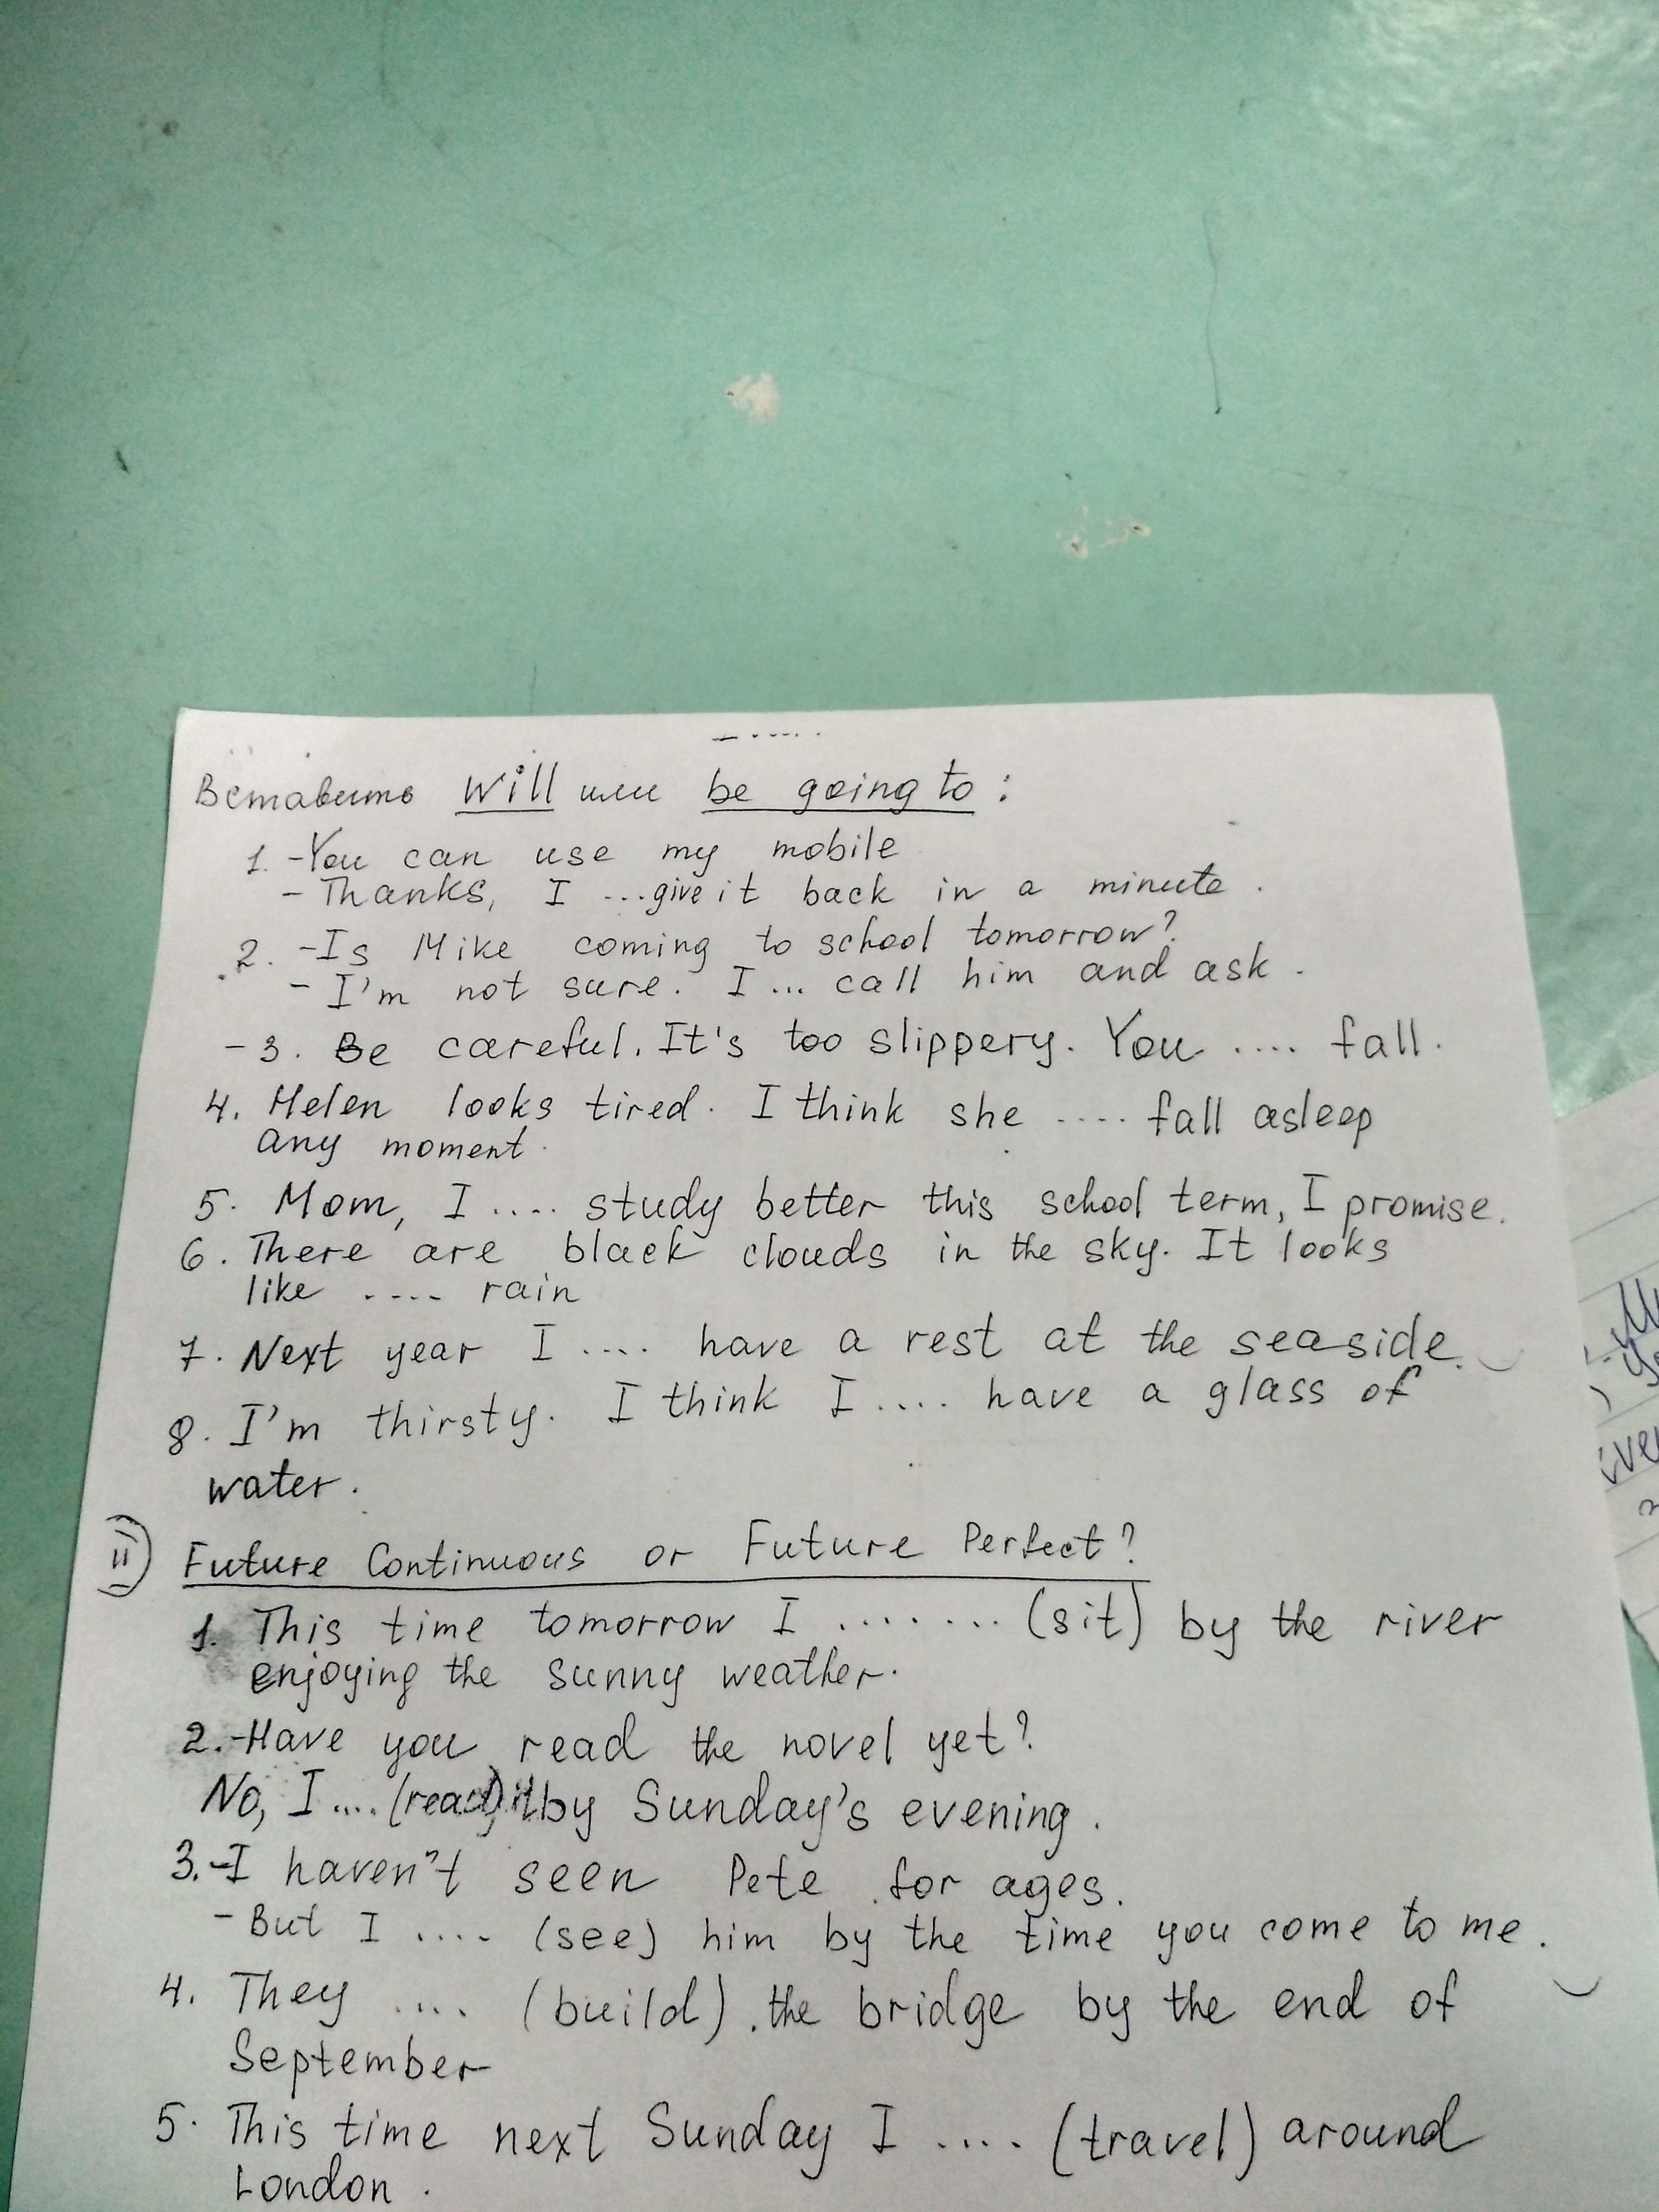 Вставить will или be going to :
1. - You can use my mobile
- Thanks, I ... give it back in a minute .
2. - Is Mike coming to school tomorrow?
- I'm not sure. I ... call him and ask .
- 3. Be careful. It's too slippery. You .... fall.
4. Helen looks tired. I think she .... fall asleep
any moment.
5. Mom, I .... study better this school term, I promise.
6. There are black clouds in the sky. It looks
like .... rain
7. Next year I .... have a rest at the seaside.
8. I'm thirsty. I think I .... have a glass of
water.
II) Future Continuous or Future Perfect?
1. This time tomorrow I ........ (sit) by the river
enjoying the sunny weather.
2. - Have you read the novel yet?
No, I .... (read) it by Sunday's evening .
3. - I haven't seen Pete for ages.
- But I .... (see) him by the time you come to me .
4. They .... (build) the bridge by the end of
September
5. This time next Sunday I .... (travel) around
London .